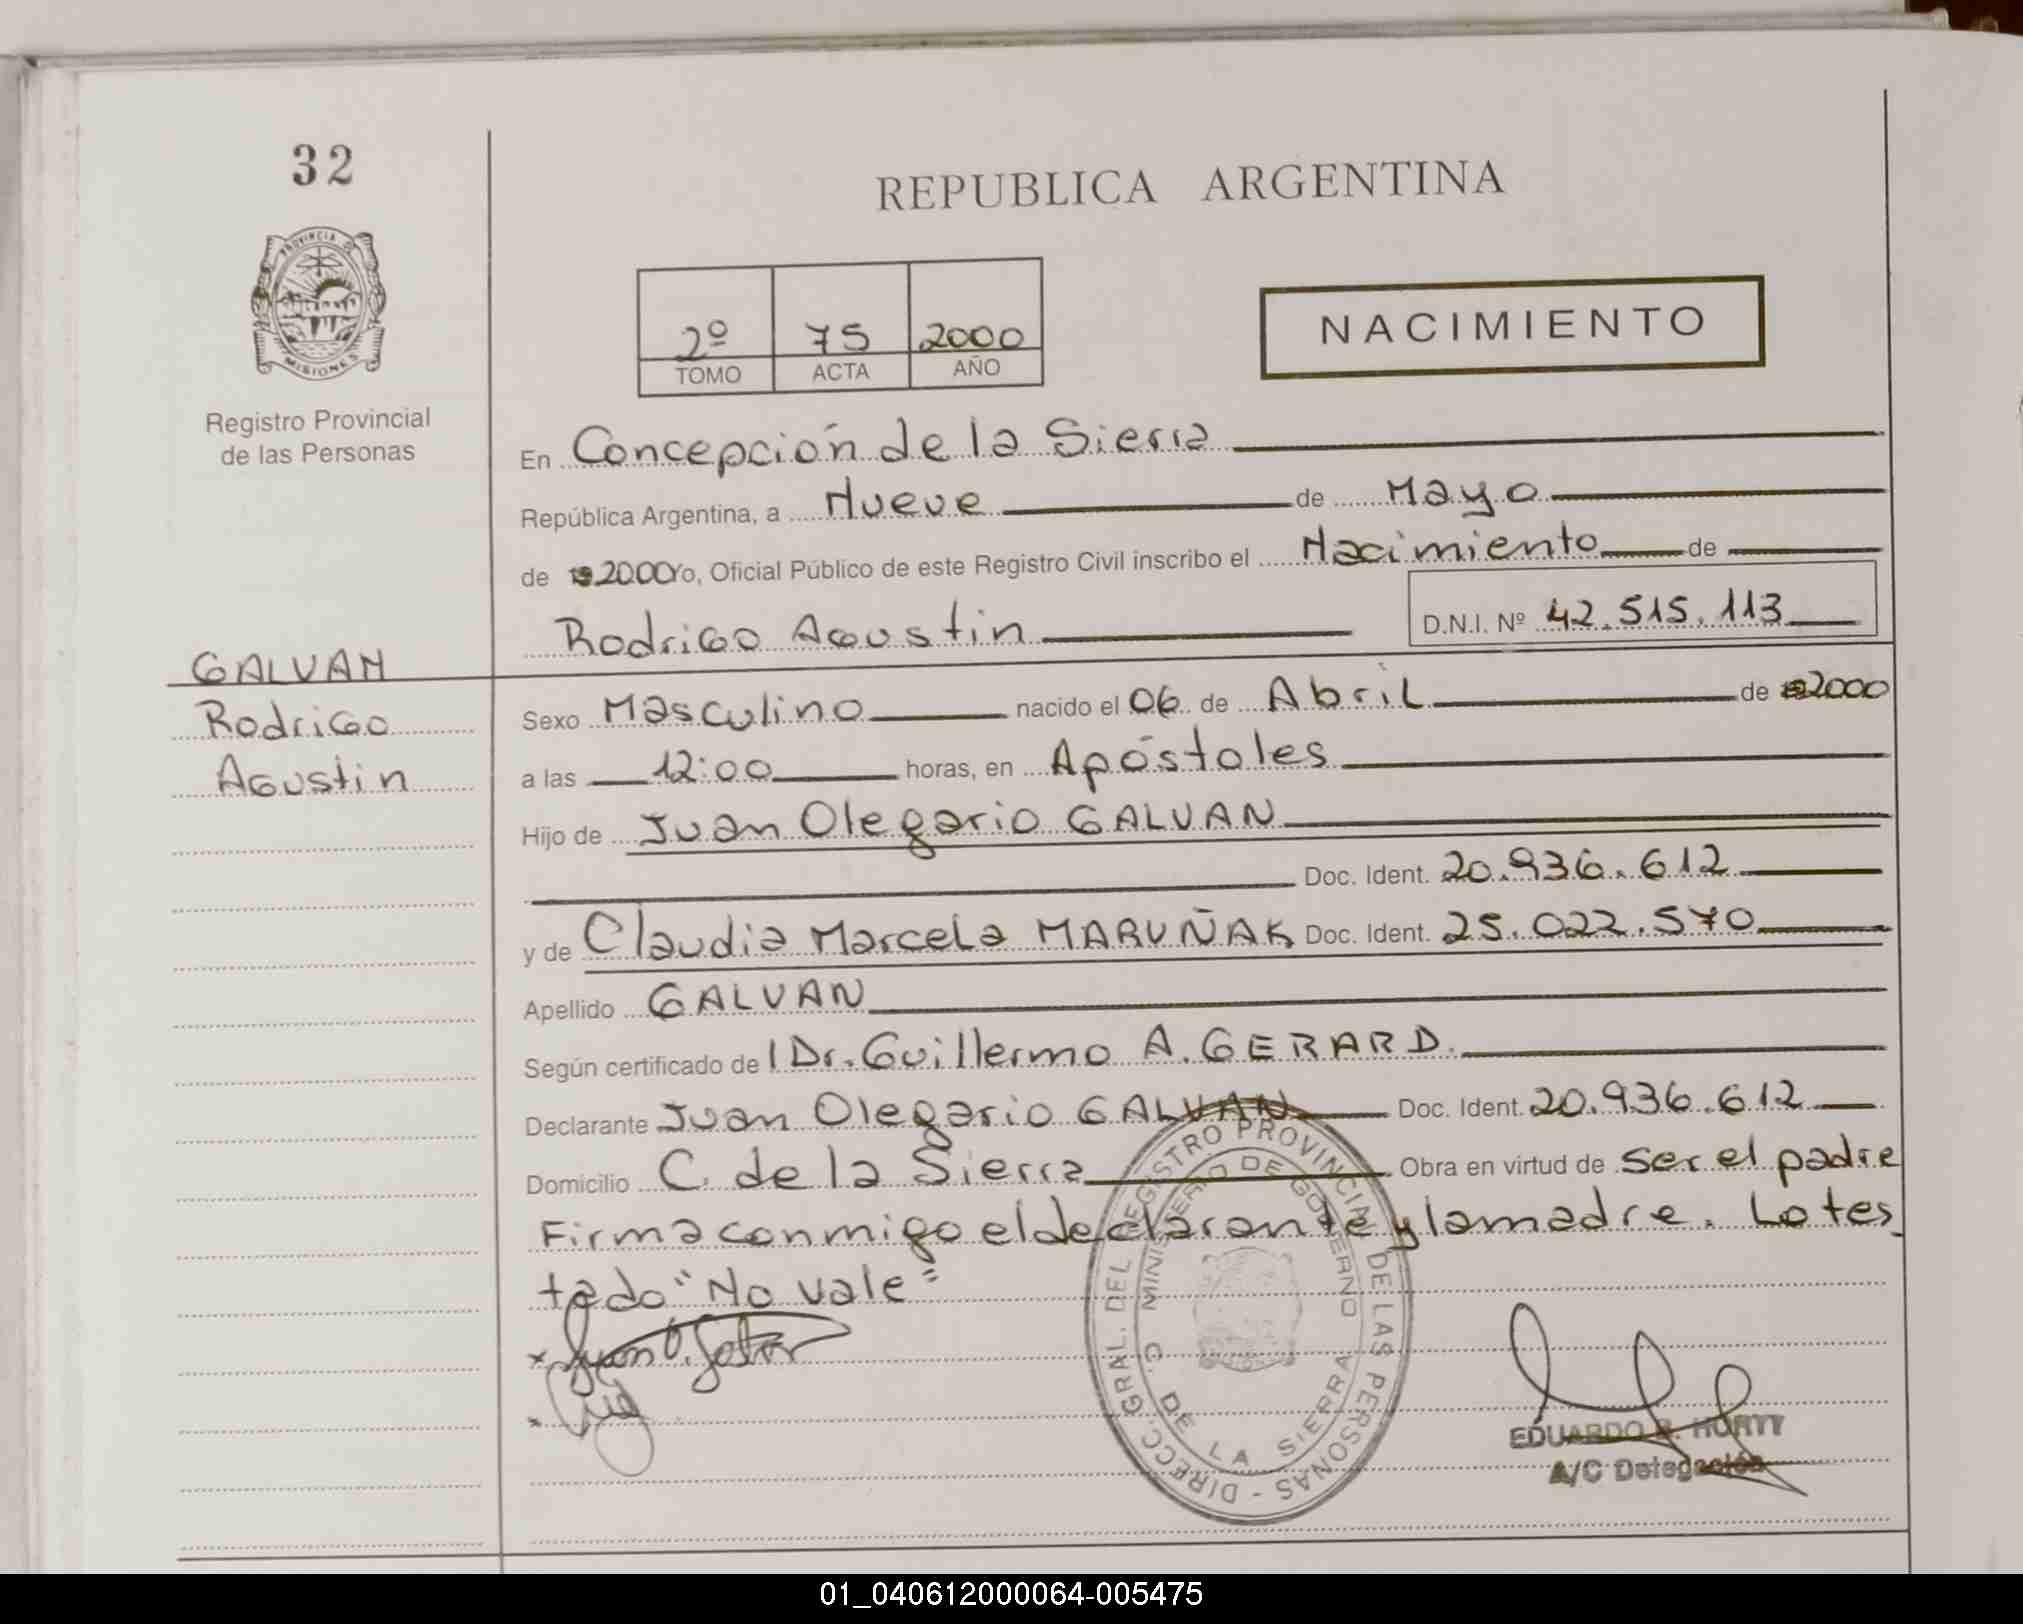 32
REPUBLICA ARGENTINA
PROVINCIA DE MISIONES
2º 75 2000
TOMO ACTA AÑO
NACIMIENTO
Registro Provincial
de las Personas
En Concepción de la Sierra
República Argentina, a Nueve de Mayo
de 2000 Yo, Oficial Público de este Registro Civil inscribo el Nacimiento de
Rodrigo Agustin D.N.I. Nº 42.515.113
GALVAN
Rodrigo
Agustin
Sexo Masculino nacido el 06 de Abril de 2000
a las 12:00 horas, en Apóstoles
Hijo de Juan Olegario GALVAN
Doc. Ident. 20.936.612
y de Claudia Marcela MARUÑAK Doc. Ident. 25.022.570
Apellido GALVAN
Según certificado de l Dr. Guillermo A. GERARD.
Declarante Juan Olegario GALVAN Doc. Ident. 20.936.612
Domicilio C. de la Sierra Obra en virtud de ser el padre
Firma conmigo el declarante y la madre. Lo tes
tado "No vale"
DIRECC. GRAL. DEL REGISTRO PROVINCIAL DE LAS PERSONAS -
MINISTERIO DE GOBIERNO
C. DE LA SIERRA
EDUARDO
A/C Delegación
01_040612000064-005475